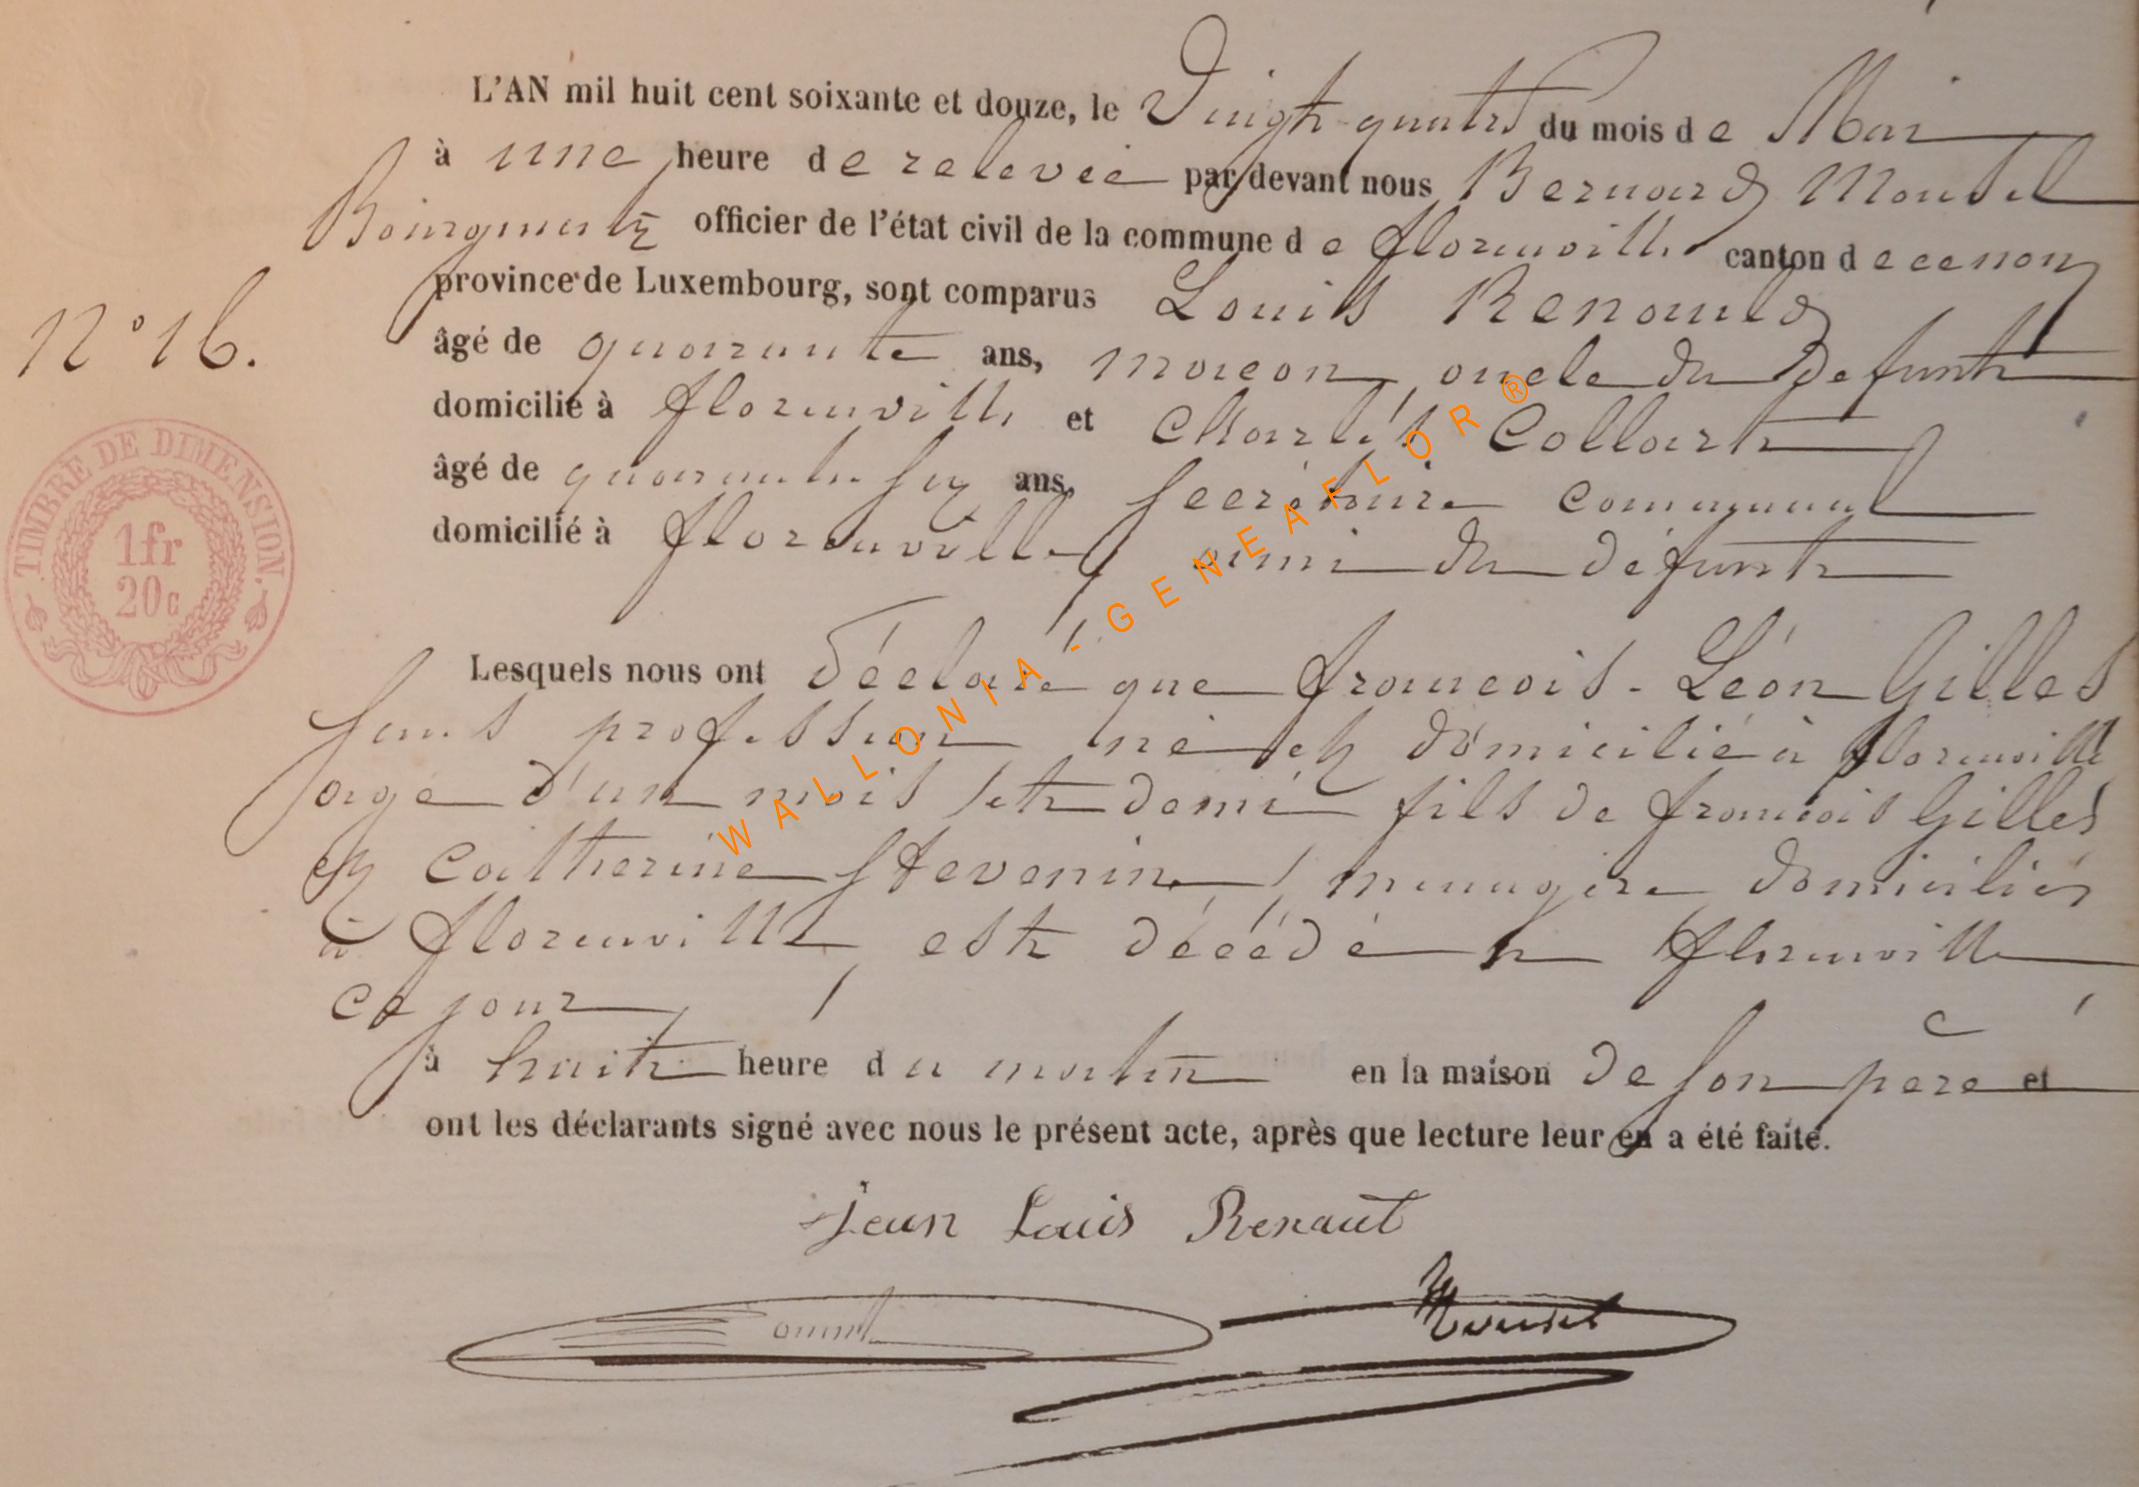 L'AN mil huit cent soixante et douze, le Vingt-quatre du mois de Mai
à une heure de relevée par devant nous Bernard Mousel
Bourgmestre officier de l'état civil de la commune de florenville canton de ce nom
province de Luxembourg, sont comparus Louis Renauld
N° 16.
âgé de quarante ans, macon, oncle du defunt
domicilié à florenville et Charles Collart
âgé de quarante six ans, secrétaire communal
domicilié à florenville, ami du défunt
TIMBRE DE DIMENSION.
1fr
20c
WALLONIA-GENEAFLOR®
Lesquels nous ont déclaré que francois-Léon Gilles
sans profession né et domicilié à florenville
agé d'un mois et demi fils de francois Gilles
et Catherine Stevenin, menagère domiciliés
à florenville est décédé à florenville
ce jour
à huit heure du matin en la maison de son père et
ont les déclarants signé avec nous le présent acte, après que lecture leur en a été faite.
Jean Louis Renaut
Mousel